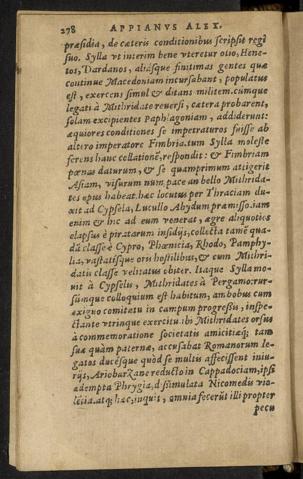 278 APPIANVS ALEX.
præsidia, de cæteris conditionibus scripsit regi
suo. Sylla vt interim bene vteretur otio, Hene-
tos, Dardanos, aliásque finitimas gentes quæ
continue Macedoniam incursabant, populatus
est, exercens simul & ditans militem. cúmque
legati à Mithridate reuersi, cætera probarent,
solam excipientes Paphlagoniam, addiderunt:
æquiores conditiones se impetraturos fuisse ab
altero imperatore Fimbria. tum Sylla moleste
ferens hanc collationē, respondit: & Fimbriam
pœnas daturum, & se quamprimum attigerit
Asiam, visurum num pace an bello Mithrida-
tes opus habeat. hæc locutus per Thraciam du-
xit ad Cypsela, Lucullo Abydum præmisso. iam
enim & hic ad eum venerat, ægre aliquoties
elapsus è piratarum insidijs, collecta tamē qua-
dā classe è Cypro, Phœnicia, Rhodo, Pamphy-
lia, vastatísque oris hostilibus, & cum Mithri-
datis classe velitatus obiter. Itaque Sylla mo-
uit à Cypselis, Mithridates à Pergamo: rur-
súmque colloquium est habitum, ambobus cum
exiguo comitatu in campum progressis, inspe-
ctante vtrinque exercitu. ibi Mithridates orsus
à commemoratione societatis amicitiæq; tam
suæ quàm paternæ, accusabat Romanorum le-
gatos ducésque quòd se multis affecissent iniu-
rijs, Ariobarzane reducto in Cappadociam, ipsi
adempta Phrygia, dissimulata Nicomedis vio-
lētia. atq; hæc, inquit, omnia fecerūt illi propter
pecu